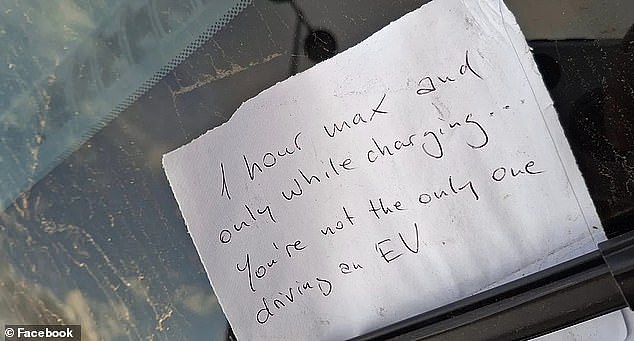 1 hour max and
only while charging...
You're not the only one
driving an EV
Facebook